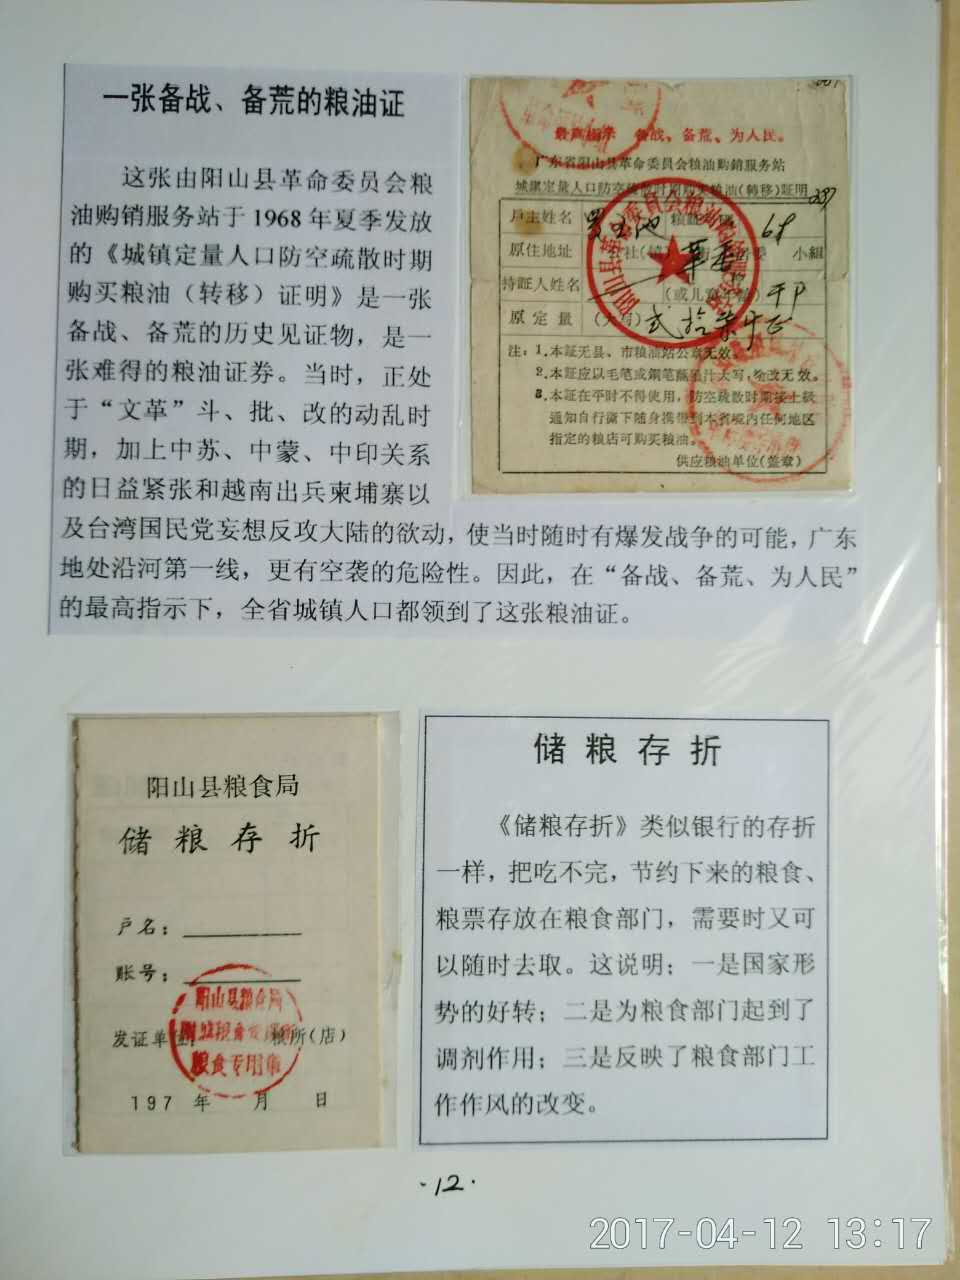 一张备战、备荒的粮油证
这张由阳山县革命委员会粮
油购销服务站于1968年夏季发放
的《城镇定量人口防空疏散时期
购买粮油（转移）证明》是一张
备战、备荒的历史见证物，是一
张难得的粮油证券。当时，正处
于“文革”斗、批、改的动乱时
期，加上中苏、中蒙、中印关系
的日益紧张和越南出兵柬埔寨以
及台湾国民党妄想反攻大陆的欲动，使当时随时有爆发战争的可能，广东
地处沿河第一线，更有空袭的危险性。因此，在“备战、备荒、为人民”
的最高指示下，全省城镇人口都领到了这张粮油证。
最高指示 备战、备荒、为人民。
广东省阳山县革命委员会粮油购销服务站
城镇定量人口防空疏散时期购买粮油(转移)证明
237
户主姓名
原住地址 小組
持証人姓名 (或儿童年龄)
原定量 (大写) 弍拾柒斤正
注：1.本証无县、市粮油站公章无效。
2.本証应以毛笔或鋼笔蘸墨汁大写，涂改无效。
3.本証在平时不得使用，防空疏散时期按上級
通知自行撕下随身携带到本省境内任何地区
指定的粮店可购买粮油。
供应粮油单位(签章)
阳山县粮食局
储粮存折
户名：
账号：
发证单位： 粮所(店)
阳山县粮食局
粮食专用章
197 年 月 日
储粮存折
《储粮存折》类似银行的存折
一样，把吃不完，节约下来的粮食、
粮票存放在粮食部门，需要时又可
以随时去取。这说明；一是国家形
势的好转；二是为粮食部门起到了
调剂作用；三是反映了粮食部门工
作作风的改变。
·12·
2017-04-12 13:17